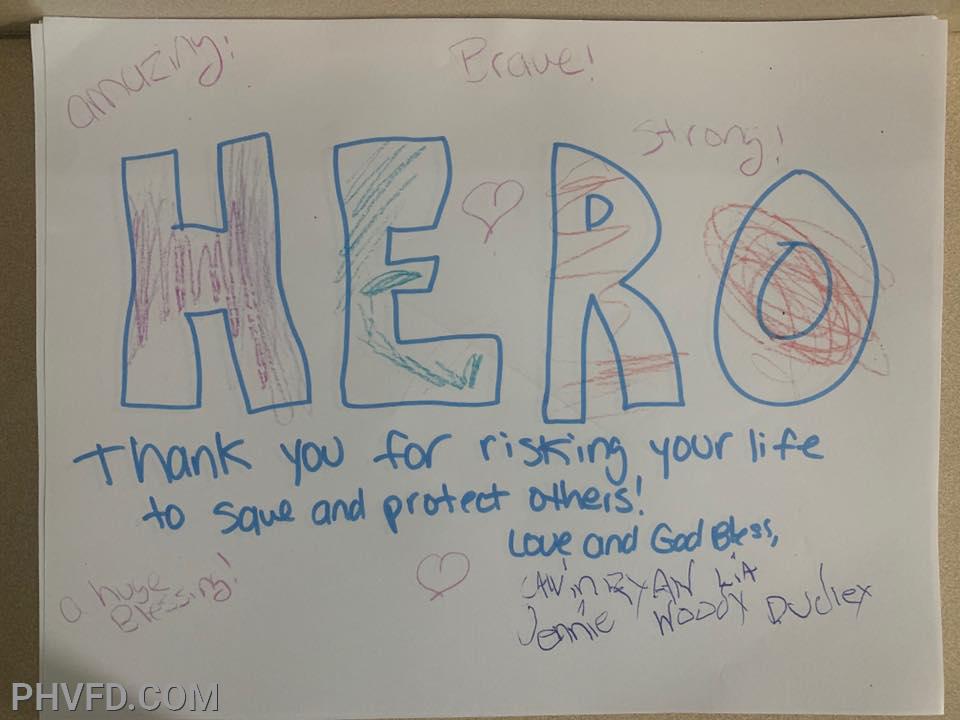 amazing!
Brave!
Strong!
HERO
Thank you for risking your life
to save and protect others!
Love and God Bless,
RYAN LiA
Jennie WOODY DUDLEY
a huge
Blessing!
PHVFD.COM